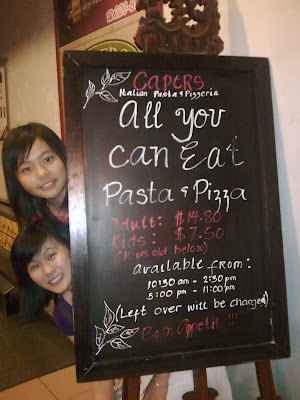 CAPERS
Italian Pasta & Pizzeria
All you
can Eat
Pasta & Pizza
Adult: $14.80
Kids: $7.50
(10 years old below)
available from:
10:30 am - 2:30 pm
5:00 pm - 11:00 pm
(Left over will be charged)
Bon Appetit !!!